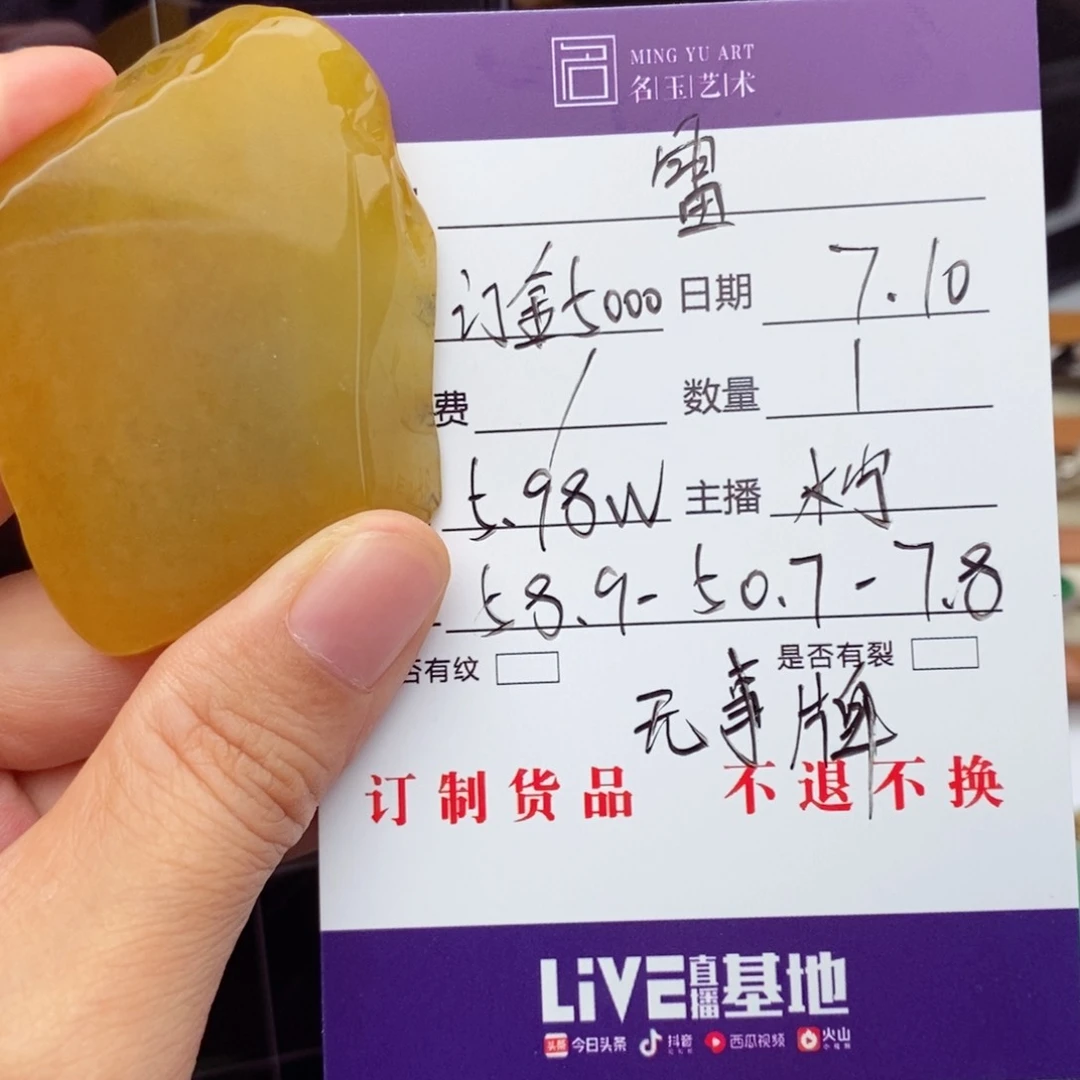 MING YU ART
名玉艺术
雷
订金5000 日期 7.10
费 / 数量 1
5.98W 主播
58.9-50.7-7.8
否有纹 是否有裂
无事牌
订制货品 不退不换
LiVE直播基地
头条 今日头条 抖音 西瓜视频 火山